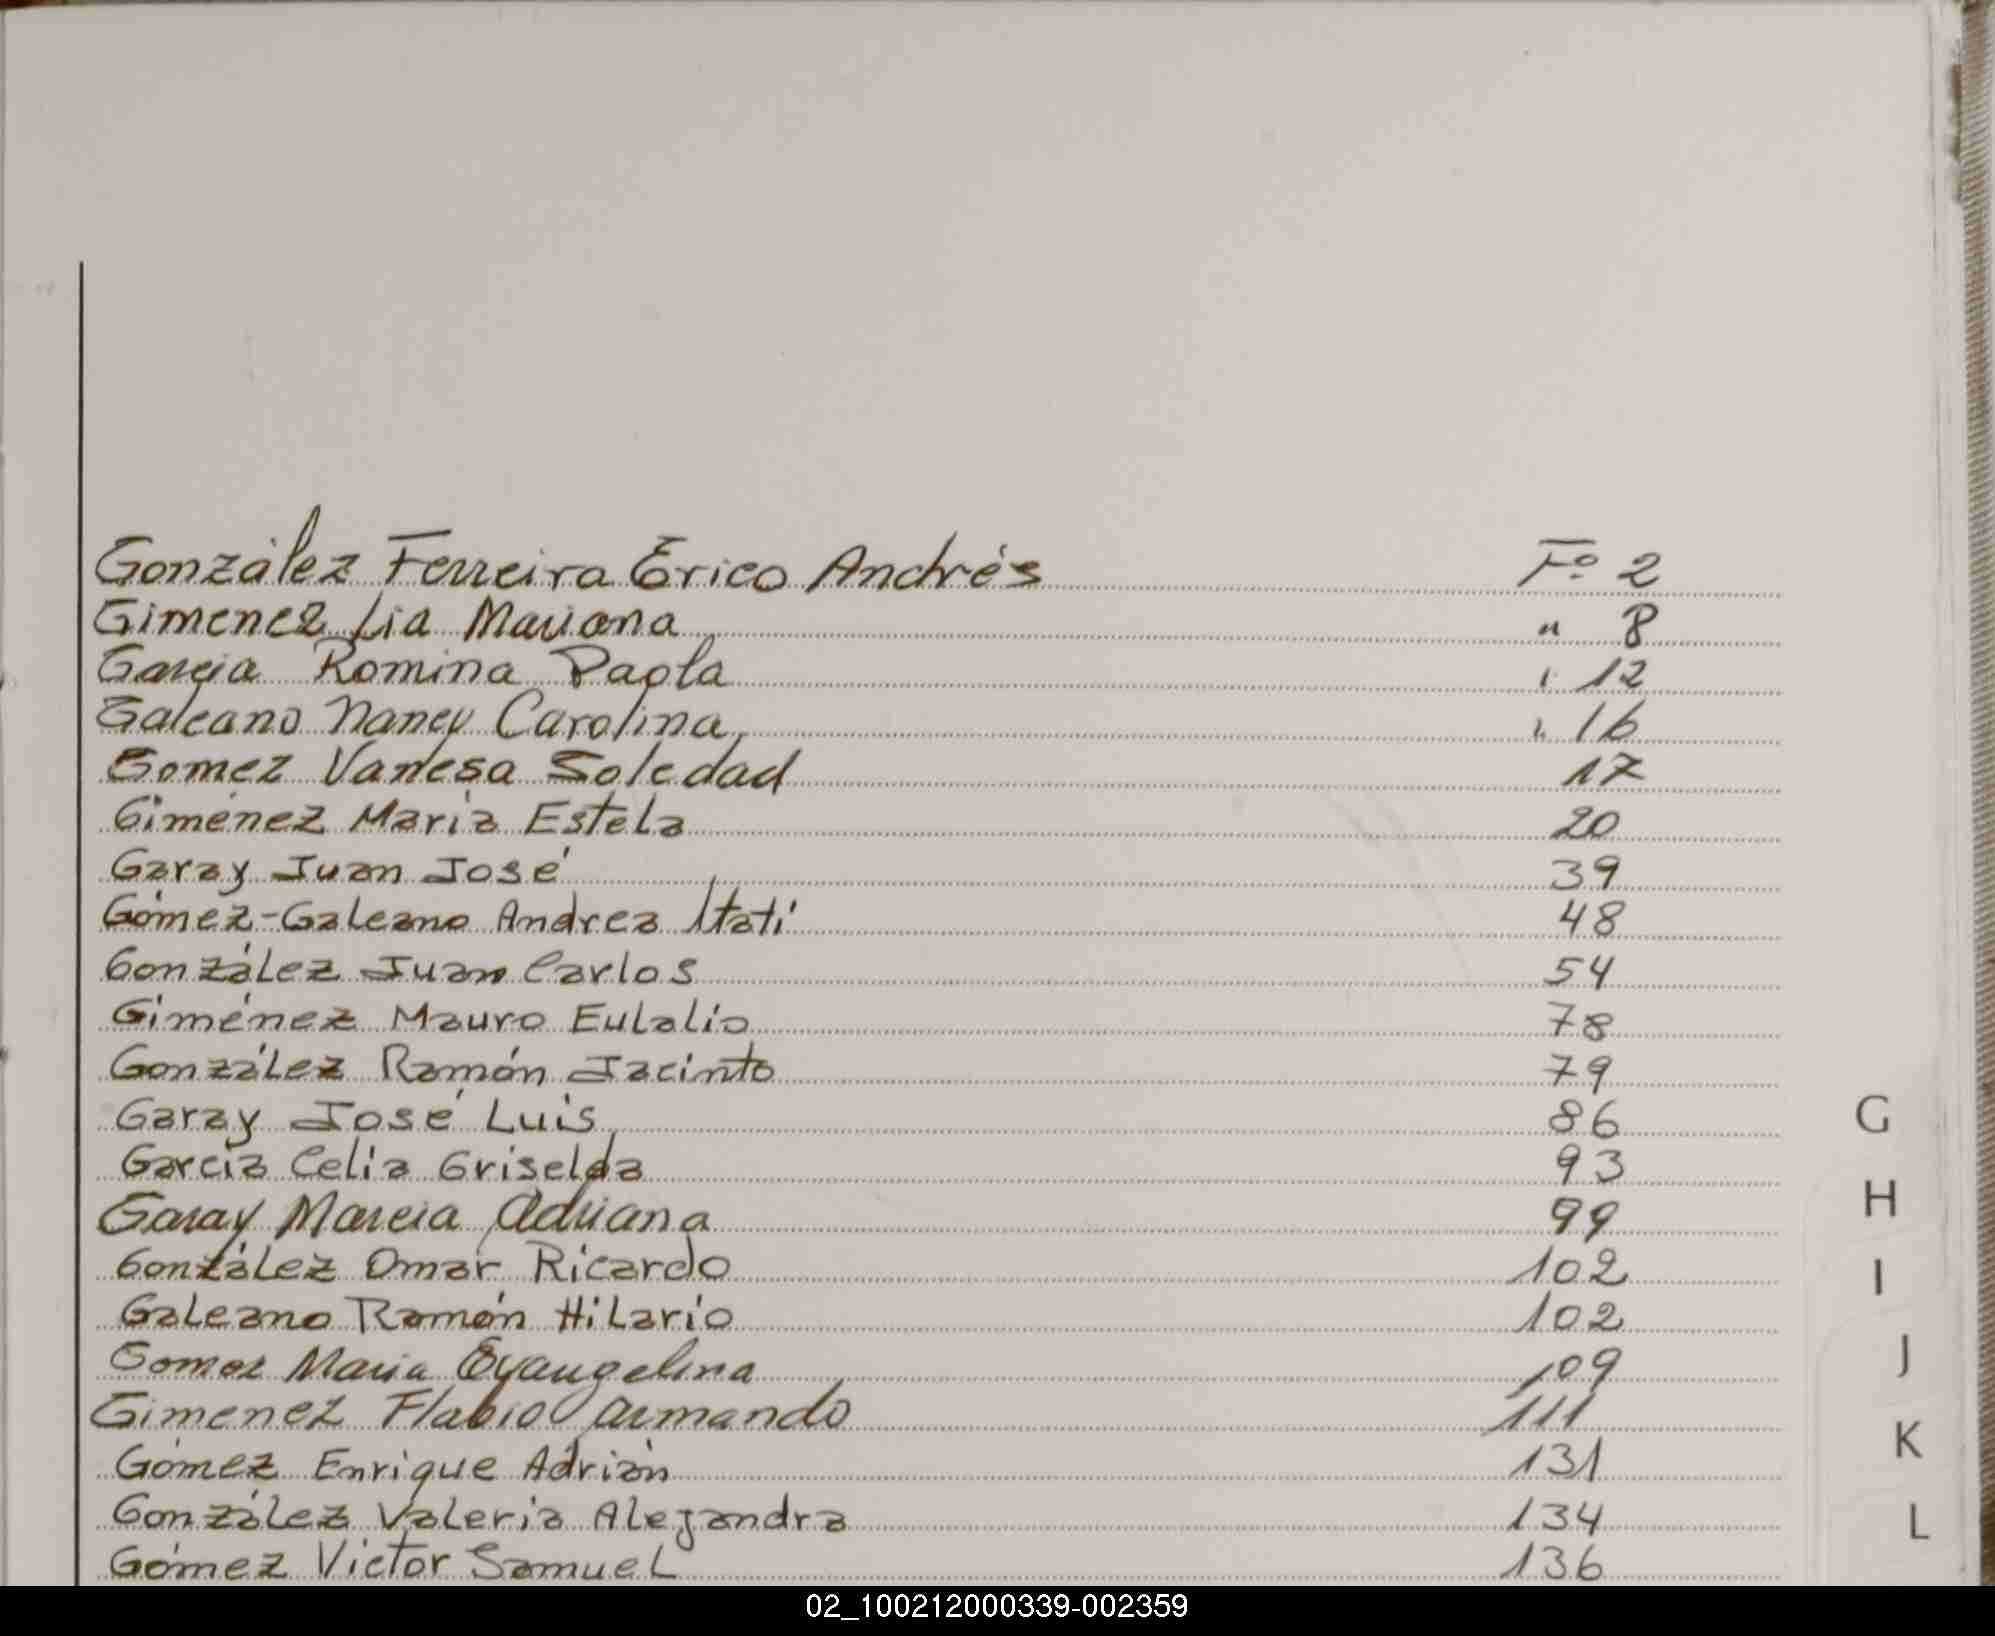 González Ferreira Erico Andrés Fº 2
Gimenez Lia Mariana " 8
Garcia Romina Paola " 12
Galeano Nancy Carolina " 16
Gomez Vanesa Soledad 17
Giménez María Estela 20
Garay Juan José 39
Gómez-Galeano Andrea Itatí 48
González Juan Carlos 54
Giménez Mauro Eulalio 78
González Ramón Jacinto 79
Garay José Luis 86
García Celia Griselda 93
Garay Marcia Adriana 99
González Omar Ricardo 102
Galeano Ramón Hilario 102
Gomez Maria Evangelina 109
Gimenez Flabio Armando 111
Gómez Enrique Adrián 131
González Valeria Alejandra 134
Gómez Victor Samuel 136
G
H
I
J
K
L
02_100212000339-002359